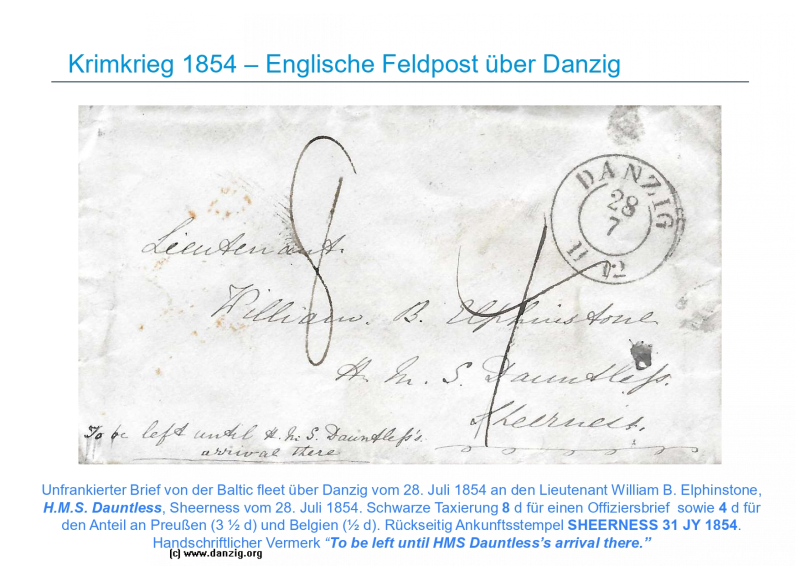 Krimkrieg 1854 – Englische Feldpost über Danzig
8
DANZIG
28
7
11 12
4
Lieutenant.
William. B. Elphinstone
H. M. S. Dauntless.
Sheerness.
To be left until H. M. S. Dauntless's
arrival there
Unfrankierter Brief von der Baltic fleet über Danzig vom 28. Juli 1854 an den Lieutenant William B. Elphinstone,
H.M.S. Dauntless, Sheerness vom 28. Juli 1854. Schwarze Taxierung 8 d für einen Offiziersbrief sowie 4 d für
den Anteil an Preußen (3 ½ d) und Belgien (½ d). Rückseitig Ankunftsstempel SHEERNESS 31 JY 1854.
Handschriftlicher Vermerk “To be left until HMS Dauntless’s arrival there.”
(c) www.danzig.org